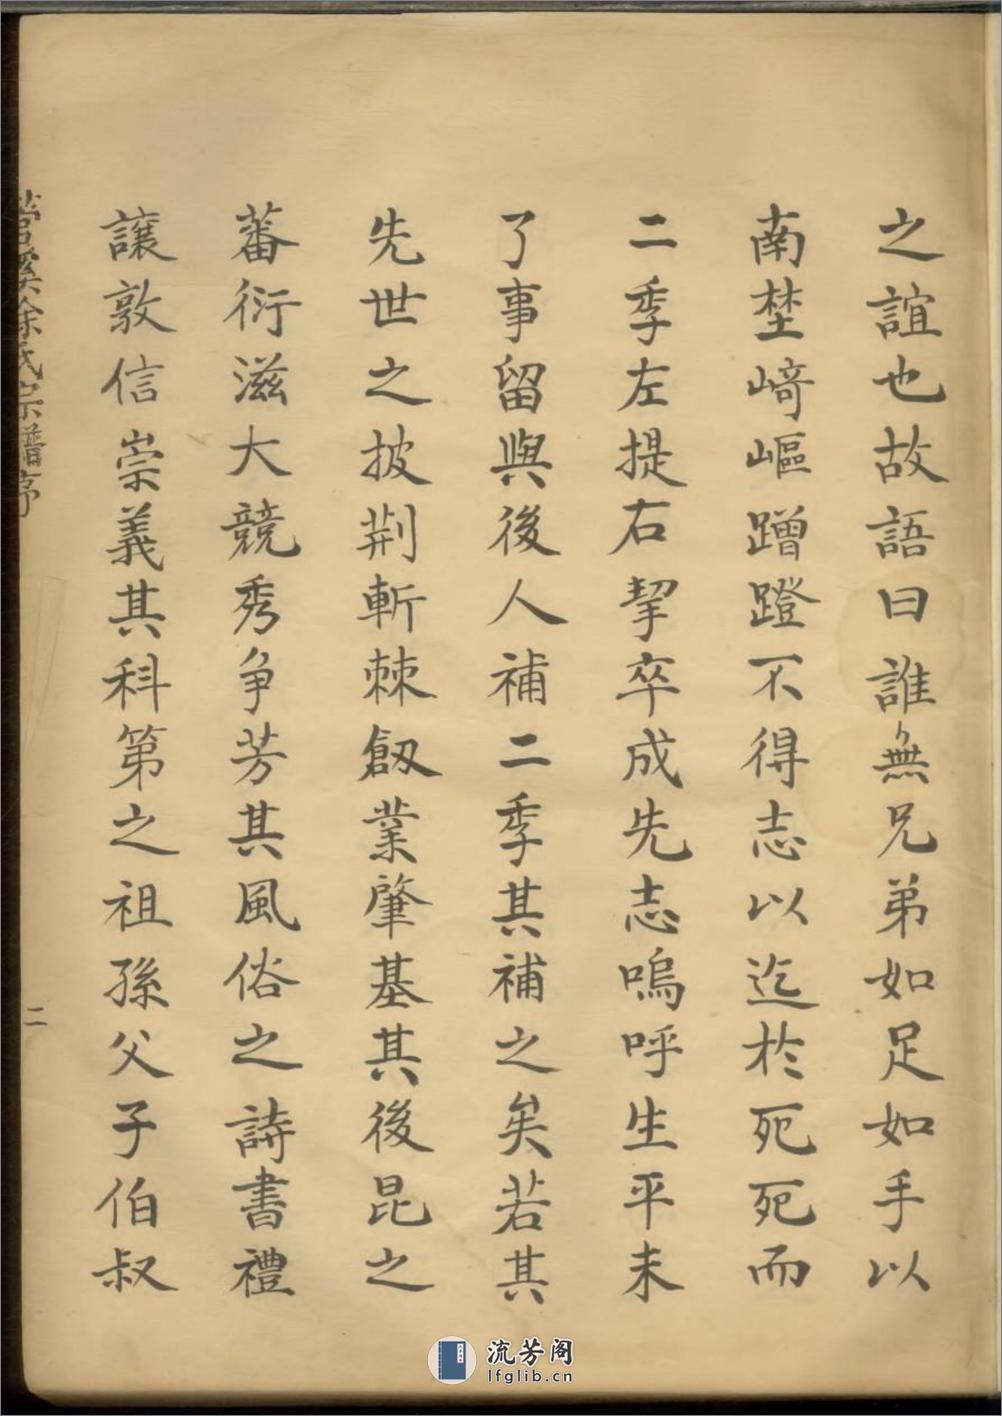 之誼也故語曰誰無兄弟如足如手以
南埜﨑嶇蹭蹬不得志以迄於死死而
二季左提右挈卒成先志嗚呼生平未
了事留與後人補二季其補之矣若其
先世之披荆斬棘剏業肇基其後昆之
蕃衍滋大競秀争芳其風俗之詩書禮
讓敦信崇義其科第之祖孫父子伯叔
溪徐氏宗譜序
二
流芳阁
lfglib.cn